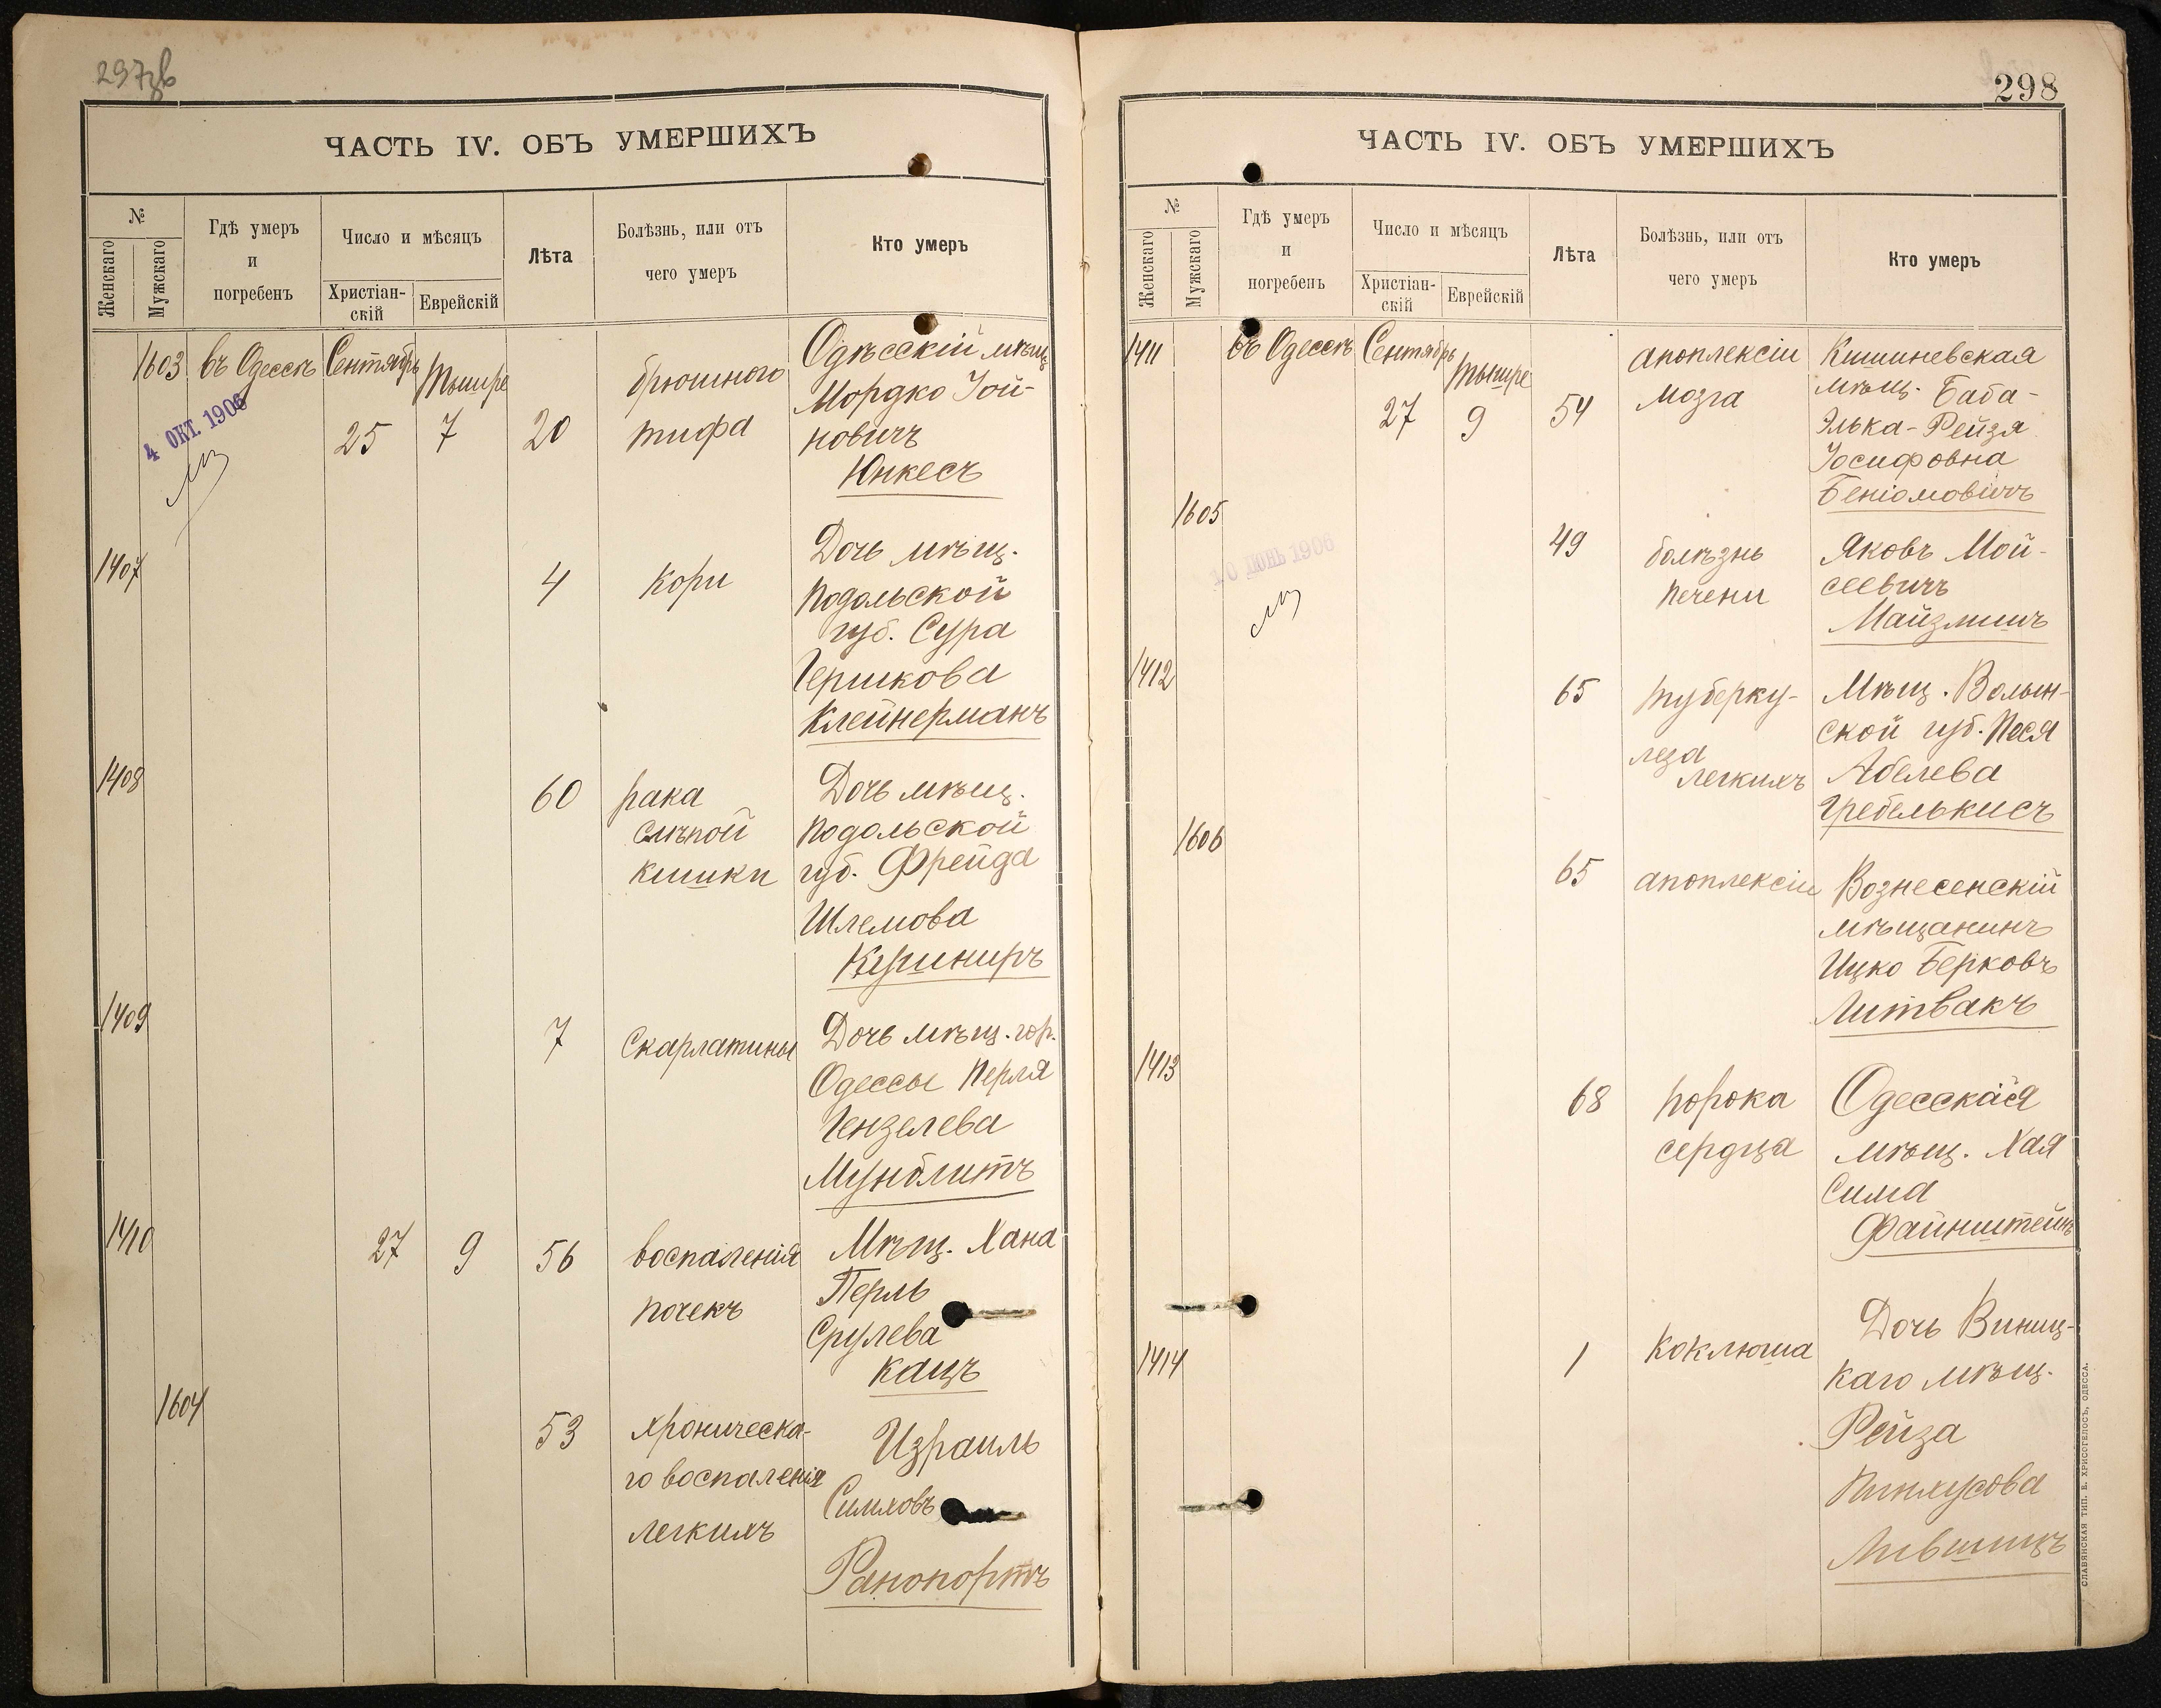 297об
ЧАСТЬ IV. ОБЪ УМЕРШИХЪ
№
Женскаго
Мужскаго
Гдѣ умеръ
и
погребенъ
Число и мѣсяцъ
Христіан-
скій
Еврейскій
Лѣта
Болѣзнь, или отъ
чего умеръ
Кто умеръ
1603
въ Одессѣ
Сентябрь
25
Тышре
7
20
брюшного
тифа
Одѣсскій мѣщ
Мордко Іой-
новичъ
Юнкесъ
4 ОКТ. 1906
1407
4
кори
Дочь мѣщ.
Подольской
губ. Сура
Гершкова
Клейнерманъ
1408
60
рака
слѣпой
кишки
Дочь мѣщ.
Подольской
губ. Фрейда
Шлемова
Кушниръ
1409
7
Скарлатины
Дочь мѣщ. гор.
Одессы Перля
Гензелева
Мунблитъ
1410
27
9
56
воспаленія
почекъ
Мѣщ. Хана
Перль
Срулева
Кацъ
1604
53
хроническа-
го воспаленія
легкихъ
Израиль
Симховъ
Рапопортъ
298
ЧАСТЬ IV. ОБЪ УМЕРШИХЪ
№
Женскаго
Мужскаго
Гдѣ умеръ
и
погребенъ
Число и мѣсяцъ
Христіан-
скій
Еврейскій
Лѣта
Болѣзнь, или отъ
чего умеръ
Кто умеръ
1411
въ Одессѣ
Сентябрь
27
Тышре
9
54
апоплексіи
мозга
Кишиневская
мѣщ. Баба-
Элька-Рейзя
Іосифовна
Беніомовичъ
1605
10 ІЮНЬ 1906
49
болѣзнь
печени
Яковъ Мой-
сеевичъ
Майзлишъ
1412
65
туберку-
леза
легкихъ
Мѣщ. Волын-
ской губ. Песя
Абелева
Гребелькисъ
1606
65
апоплексіи
Вознесенскій
мѣщанинъ
Ицко Берковъ
Литвакъ
1413
68
порока
сердца
Одесская
мѣщ. Хая
Сима
Файнштейнъ
1414
1
Коклюша
Дочь Виниц-
каго мѣщ.
Рейза
Пинхусова
Лившицъ
СЛАВЯНСКАЯ ТИП. Е. ХРИСОГЕЛОСЪ, ОДЕССА.